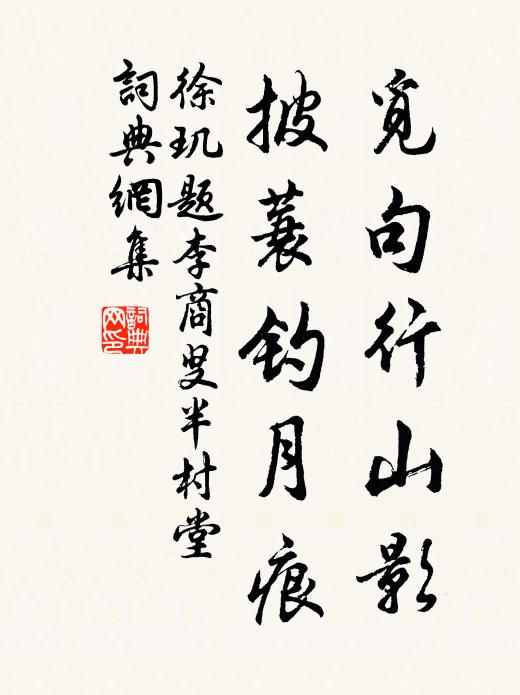 覓句行山影
披蓑釣月痕
徐玑题李商叟半村堂
詞典網集
詞典网印